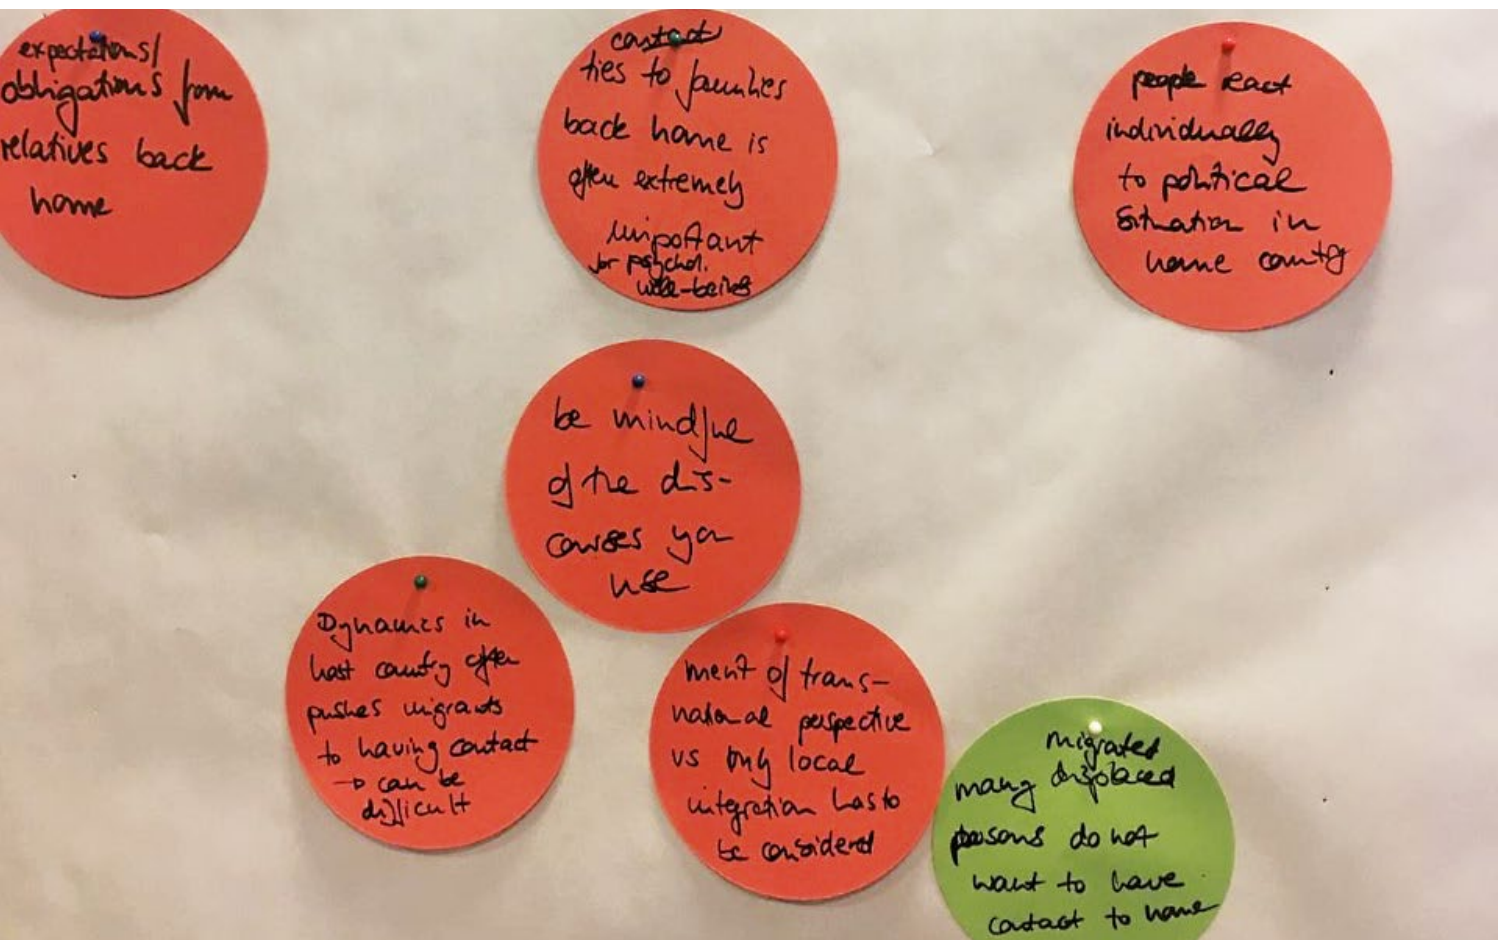 expectations/
obligations from
relatives back
home
contact
ties to families
back home is
often extremely
important
for psychol.
well-being
people react
individually
to political
situation in
home country
be mindful
of the dis-
courses you
use
Dynamics in
host country often
pushes migrants
to having contact
→ can be
difficult
merit of trans-
national perspective
vs only local
integration has to
be considered
migrated
many displaced
persons do not
want to have
contact to home